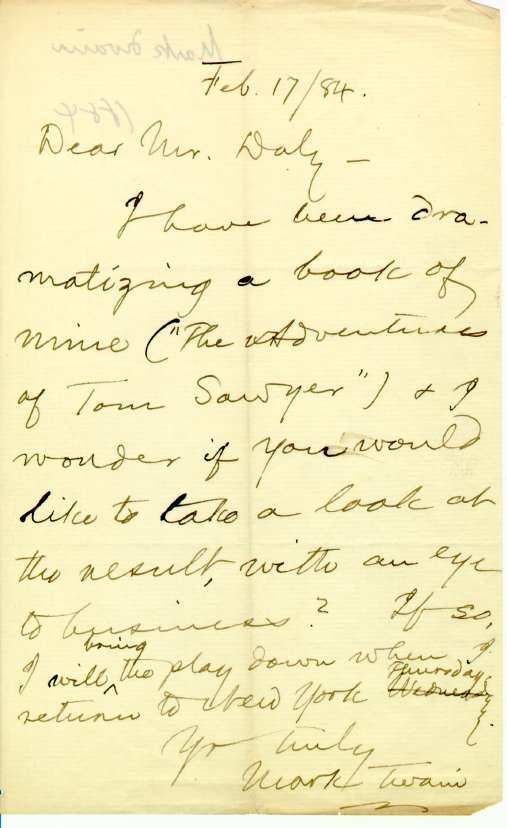 Mark Twain
1884
Feb. 17/84.
Dear Mr. Daly —
I have been dra-
matizing a book of
mine ("The Adventures
of Tom Sawyer") & I
wonder if you would
like to take a look at
the result, with an eye
to business? If so,
I will bring the play down when I
return to New York Wednesday Thursday.
Yr truly
Mark Twain